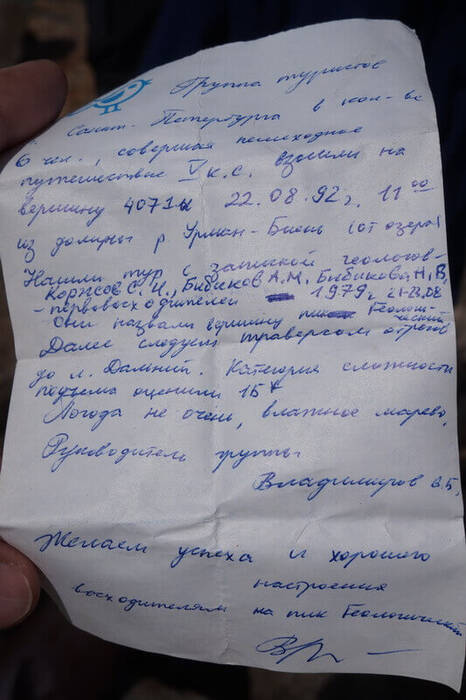 Группа туристов
Санкт-Петербурга в кол-ве
6 чел., совершая пешеходное
путешествие V к.с. взошли на
вершину 4071м 22.08.92г. 11 00
из долины р. Урман-Биень (от озера)
Нашли тур с запиской геологов-
Коржов С.И., Бибиков А.М., Бибикова Н.В.
- первовосходителей 1979г. 21-23.08
Они назвали вершину пик Геологический
Далее следуем траверсом отрогов
до л. Дальний. Категория сложности
подъема оценили 1Б*
Погода не очень, влажное марево.
Руководитель группы
Владимиров В.Б.
Желаем успеха и хорошего
настроения
восходителям на пик Геологический